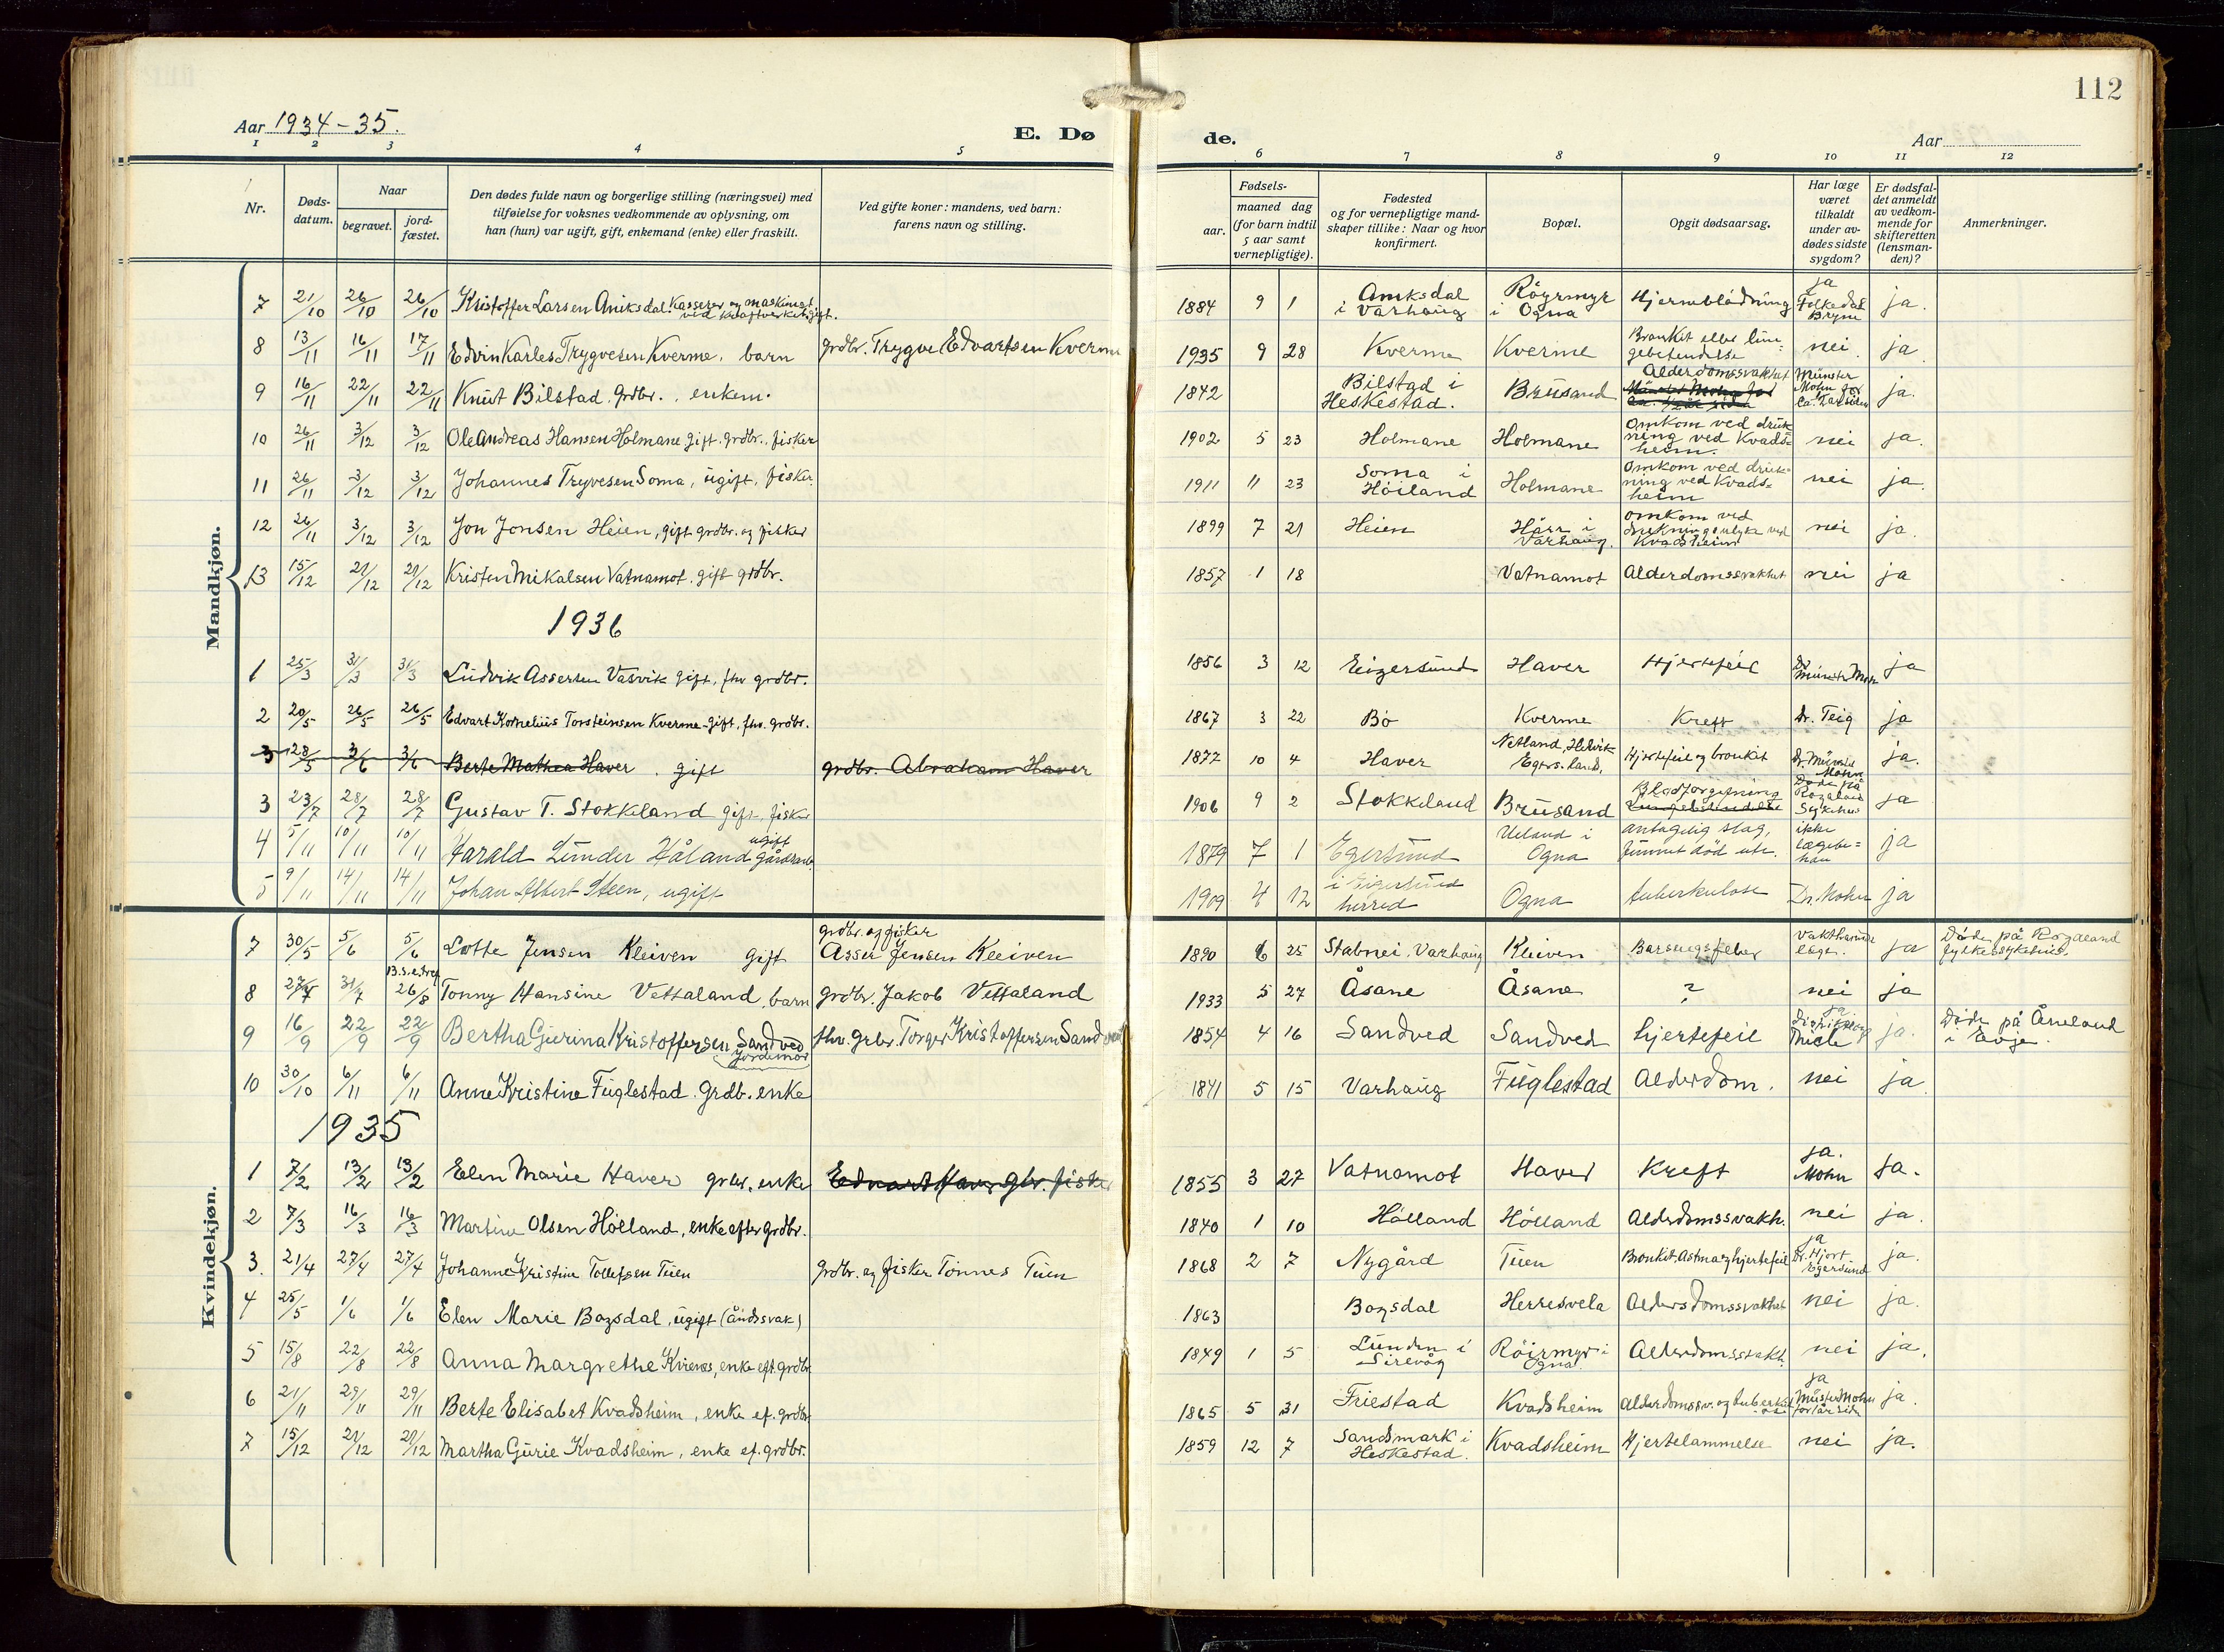 112
Aar 1934-35.
E. Dø
de.
Aar
1 2 3 4 5 6 7 8 9 10 11 12
Nr.
Døds-
datum.
Naar
begravet.
jord-
fæstet.
Den dødes fulde navn og borgerlige stilling (næringsvei) med
tilføielse for voksnes vedkommende av oplysning, om
han (hun) var ugift, gift, enkemand (enke) eller fraskilt.
Ved gifte koner: mandens, ved barn:
farens navn og stilling.
Fødsels-
aar.
maaned dag
(for barn indtil
5 aar samt
vernepligtige).
Fødested
og for vernepligtige mand-
skaper tillike: Naar og hvor
konfirmert.
Bopæl.
Opgit dødsaarsag.
Har læge
været
tilkaldt
under av-
dødes sidste
sygdom?
Er dødsfal-
det anmeldt
av vedkom-
mende for
skifteretten
(lensman-
den)?
Anmerkninger.
Mandkjøn.
7 21/10 26/10 26/10 Kristoffer Larsen Aniksdal. Kasserer og maskinist ved Kraftverket gift. 1884 9 1 Aniksdal i Varhaug Röyrmyr i Ogna Hjerneblödning ja Folkedal Bryne ja.
8 13/11 16/11 17/11 Edvin Karles Trygvesen Kverme, barn grdbr. Trygve Edvartsen Kverme 1935 9 28 Kverme Kverme Bronkit eller lungebetendelse nei. ja
9 16/11 22/11 22/11 Knut Bilstad. grdbr., enkem. 1842 Bilstad i Heskestad. Brusand Alderdomssvakhet Münster Mohn for ja.
10 26/11 3/12 3/12 Ole Andreas Hansen Holmane gift. grdbr., fisker 1902 5 23 Holmane Holmane Omkom ved drukning ved Kvadsheim. nei ja.
11 26/11 3/12 3/12 Johannes Tryvesen Soma, ugift, fisker. 1911 11 23 Soma i Höiland Holmane Omkom ved drukning ved Kvadsheim nei ja.
12 26/11 3/12 3/12 Jon Jonsen Heien, gift grdbr. og fisker 1899 7 21 Heien Hårr i Varhaug. Omkom ved drukningsulyke ved Kvadsheim nei ja.
13 15/12 21/12 21/12 Kristen Mikalsen Vatnamot, gift grdbr. 1857 1 18 Vatnamot Alderdomssvakhet nei ja
1936
1 25/3 31/3 31/3 Ludvik Assersen Vasvik gift, fhv grdbr. 1856 3 12 Eigersund Haver Hjertefeil Dr Münster Mohn ja
2 20/5 26/5 26/5 Edvart Kornelius Torsteinsen Kverme - gift, fhv. grdbr. 1867 3 22 Bö Kverme Kreft Dr. Teig ja
3 28/5 3/6 3/6 Berte Mathea Haver. gift grdbr. Abraham Haver 1877 10 4 Haver Netland, Helvik Egers. land, Hjertefeil og bronkit Dr. Münster Mohn ja.
3 23/7 28/7 28/7 Gustav T. Stokkeland gift, fisker 1906 9 2 Stokkeland Brusand Blodforgiftning Lungebetendelse Döde på Rogaland Sykehus ja
4 5/11 10/11 10/11 Harald Lunder Håland ugift gårdsarb. 1879 7 1 Egersund Ueland i Ogna antagelig slag, funnet död ute. ikke lægebehan ja
5 9/11 14/11 14/11 Johan Albert Steen, ugift 1909 4 12 i Eigersund herred Ogna tuberkulose Dr. Mohn ja
Kvindekjøn.
7 30/5 5/6 5/6 Lotte Jensen Kleiven gift grdbr. og fisker Asser Jensen Kleiven 1890 6 25 Stabnei. Varhaug Kleiven Barselfeber vakthavende læge. ja Döde på Rogaland fylkessykehus.
8 27/7 31/7 26/8 Tonny Hansine Vettaland, barn grdbr. Jakob Vettaland 1933 5 27 Åsane Åsane ? nei ja
9 16/9 22/9 22/9 Bertha Gurina Kristoffersen Sandved Jordmor fhv. grbr. Torger Kristoffersen Sandved 1854 4 16 Sandved Sandved hjertefeil ja. Thiele ja. Döde på Åneland i Evje.
10 30/10 6/11 6/11 Anne Kristine Fuglestad. grdb. enke 1841 5 15 Varhaug Fuglestad Alderdom. nei ja
1935
1 7/2 13/2 13/2 Elen Marie Haver grbr. enke Edvart Haver gbr. fisker 1855 3 27 Vatnamot Haver Kreft ja. Mohn ja.
2 7/3 16/3 16/3 Martine Olsen Hölland, enke efter grdbr. 1840 1 10 Hölland Hölland Alderdomssvakh. nei ja.
3. 21/4 27/4 27/4 Johanne Kristine Tollefsen Tuen grdbr. og fisker Tönnes Tuen 1868 2 7 Nygård Tuen Bronkit. Astma og hjertefeil ja Dr. Hjort Egersund ja.
4 25/5 1/6 1/6 Elen Marie Bogsdal, ugift (Åndssvak) 1863 Bogsdal Herresvela Alderdomssvakhet nei ja.
5 15/8 22/8 22/8 Anna Margrethe Kvernes, enke eft. grdbr. 1849 1 5 Lunden i Sirevåg Röirmyr i Ogna Alderdomssvakh. nei ja.
6 21/11 29/11 29/11 Berte Elisabet Kvadsheim, enke ef. grdbr 1865 5 31 Friestad Kvadsheim Alderdomssv. og tuberkulose ja Münster Mohn for 1 år siden ja.
7 15/12 21/12 21/12 Martha Gurie Kvadsheim, enke ef. grdbr. 1859 12 7 Sandsmark i Heskestad. Kvadsheim Hjertelammelse nei ja.